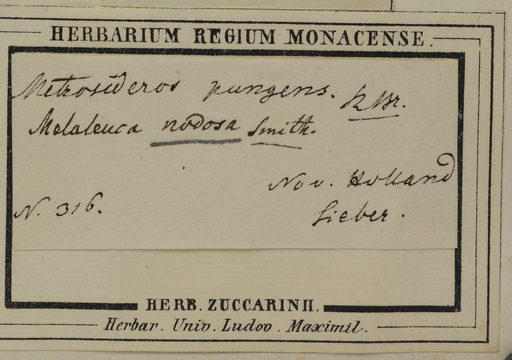 HERBARIUM REGIUM MONACENSE.
Metrosideros pungens. R Br.
Melaleuca nodosa Smith.
Nov. Holland
N. 316.
Sieber.
HERB. ZUCCARINII.
Herbar. Univ. Ludov. Maximil.